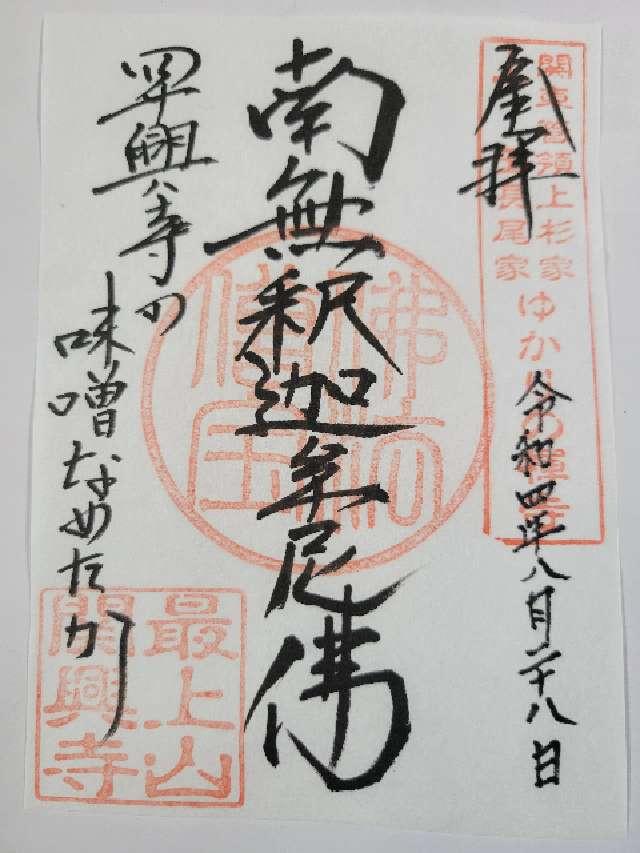 奉拝
関東管領上杉家
長尾家
ゆかりの禅寺
令和四年八月二十八日
南無釈迦牟尼佛
佛法僧宝
関興寺の
味噌なめたか
最上山
関興寺